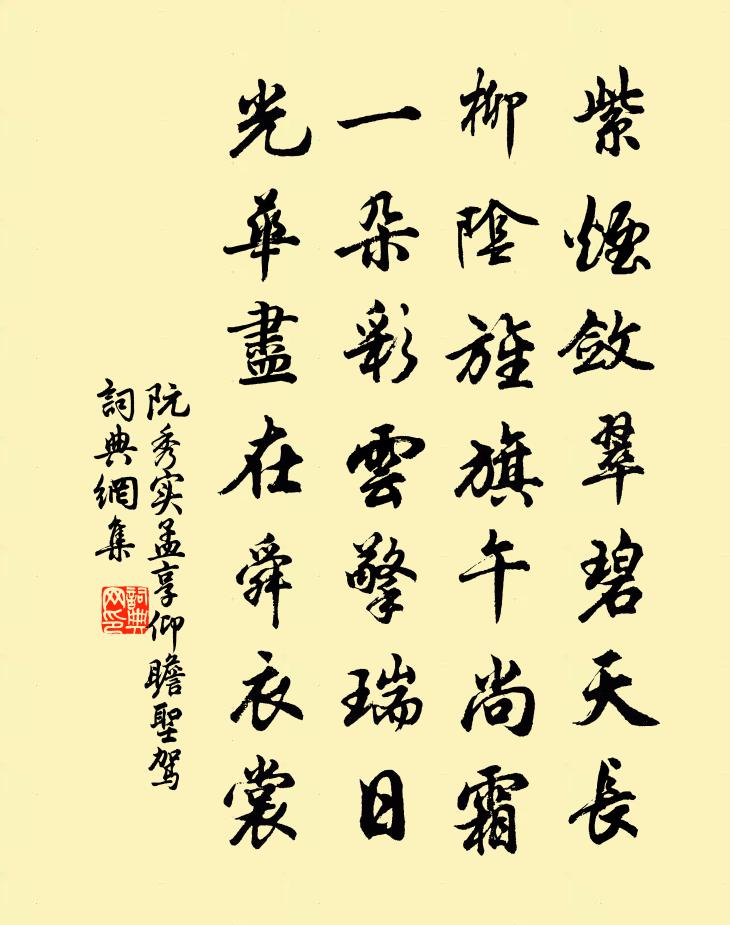 紫煙斂翠碧天長
柳陰旌旗午尚霜
一朵彩雲擎瑞日
光華盡在舜衣裳
阮秀实孟享仰瞻聖駕
詞典網集
詞典网印